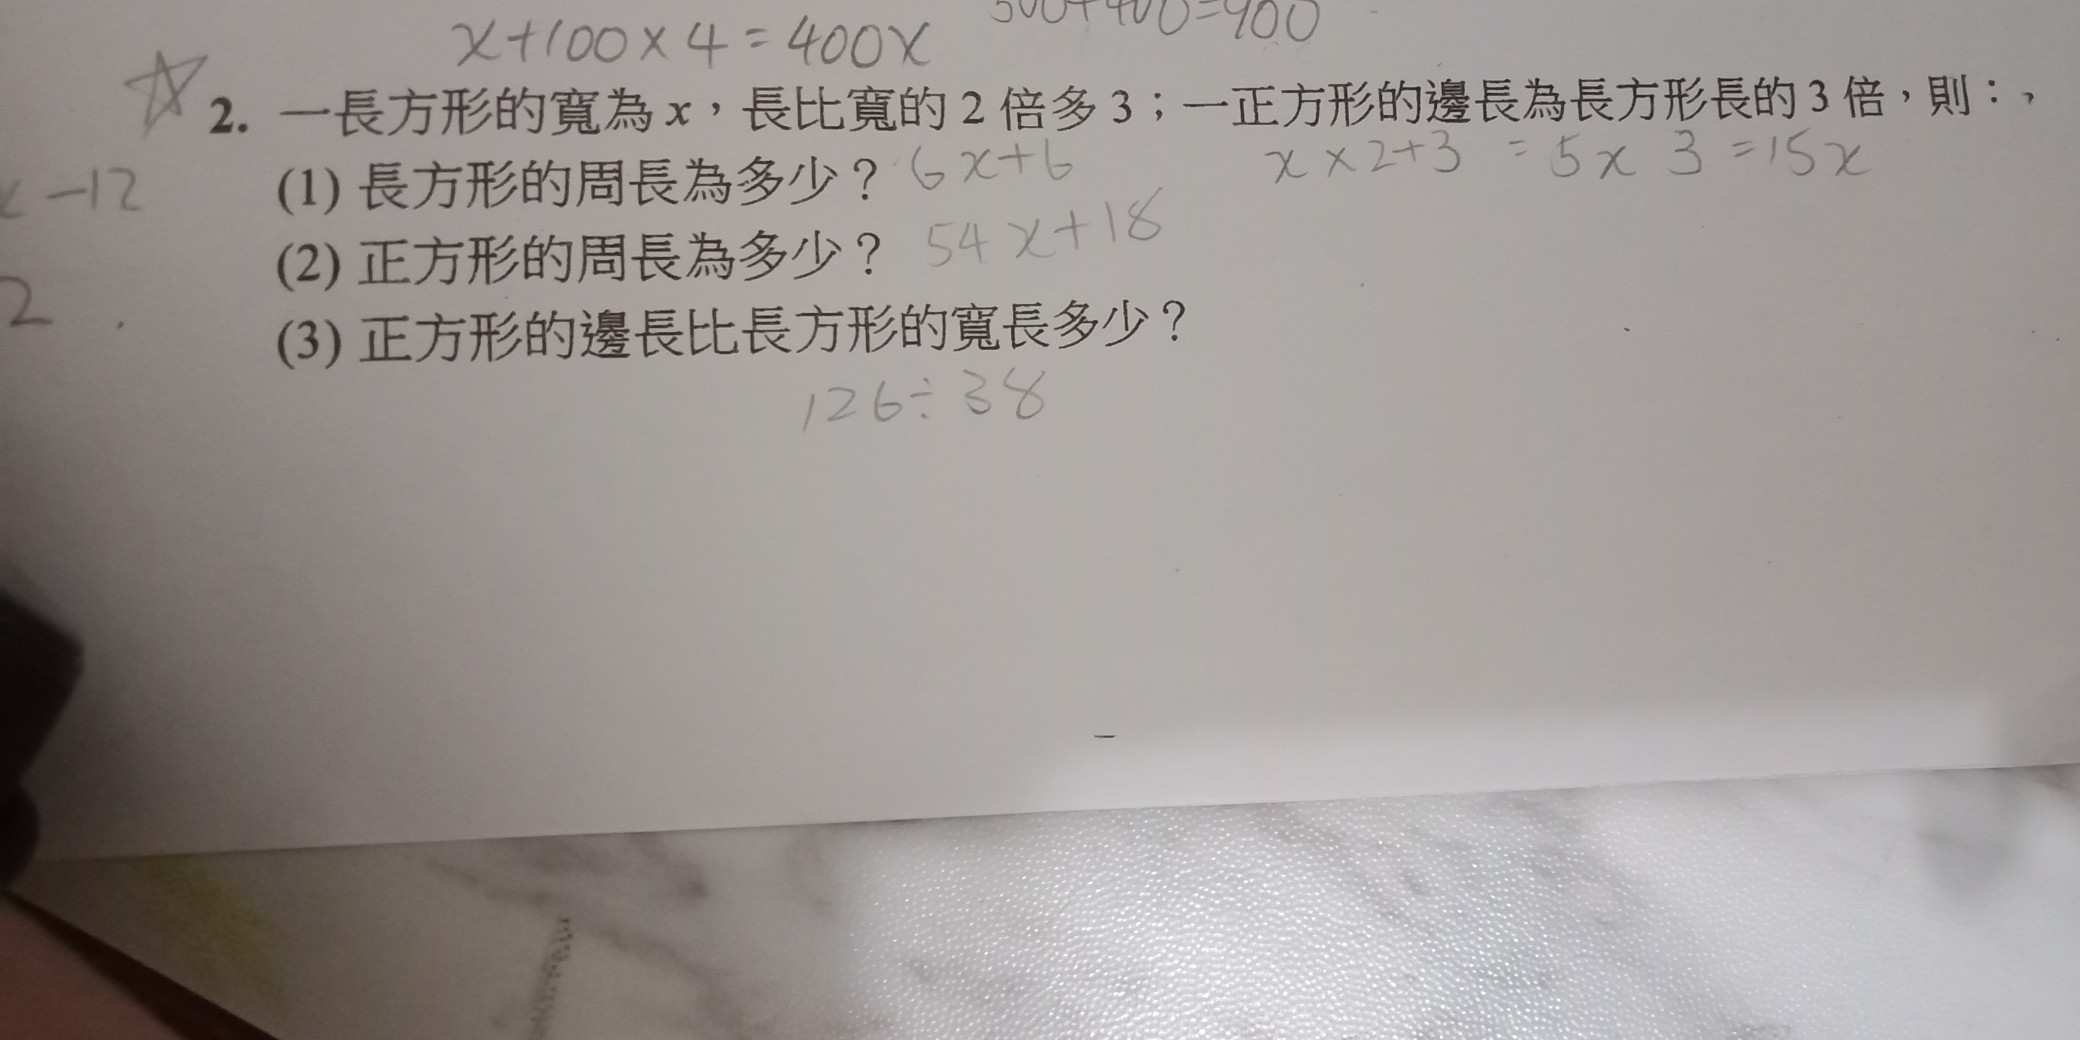 x+100×4=400x
500+400=900
2. 一長方形的寬為 x，長比寬的 2 倍多 3；一正方形的邊長為長方形長的 3 倍，則：，
x×2+3 = 5x 3 =15x
(1) 長方形的周長為多少？ 6x+6
-12
(2) 正方形的周長為多少？ 54x+18
2
(3) 正方形的邊長比長方形的寬長多少？
126÷38